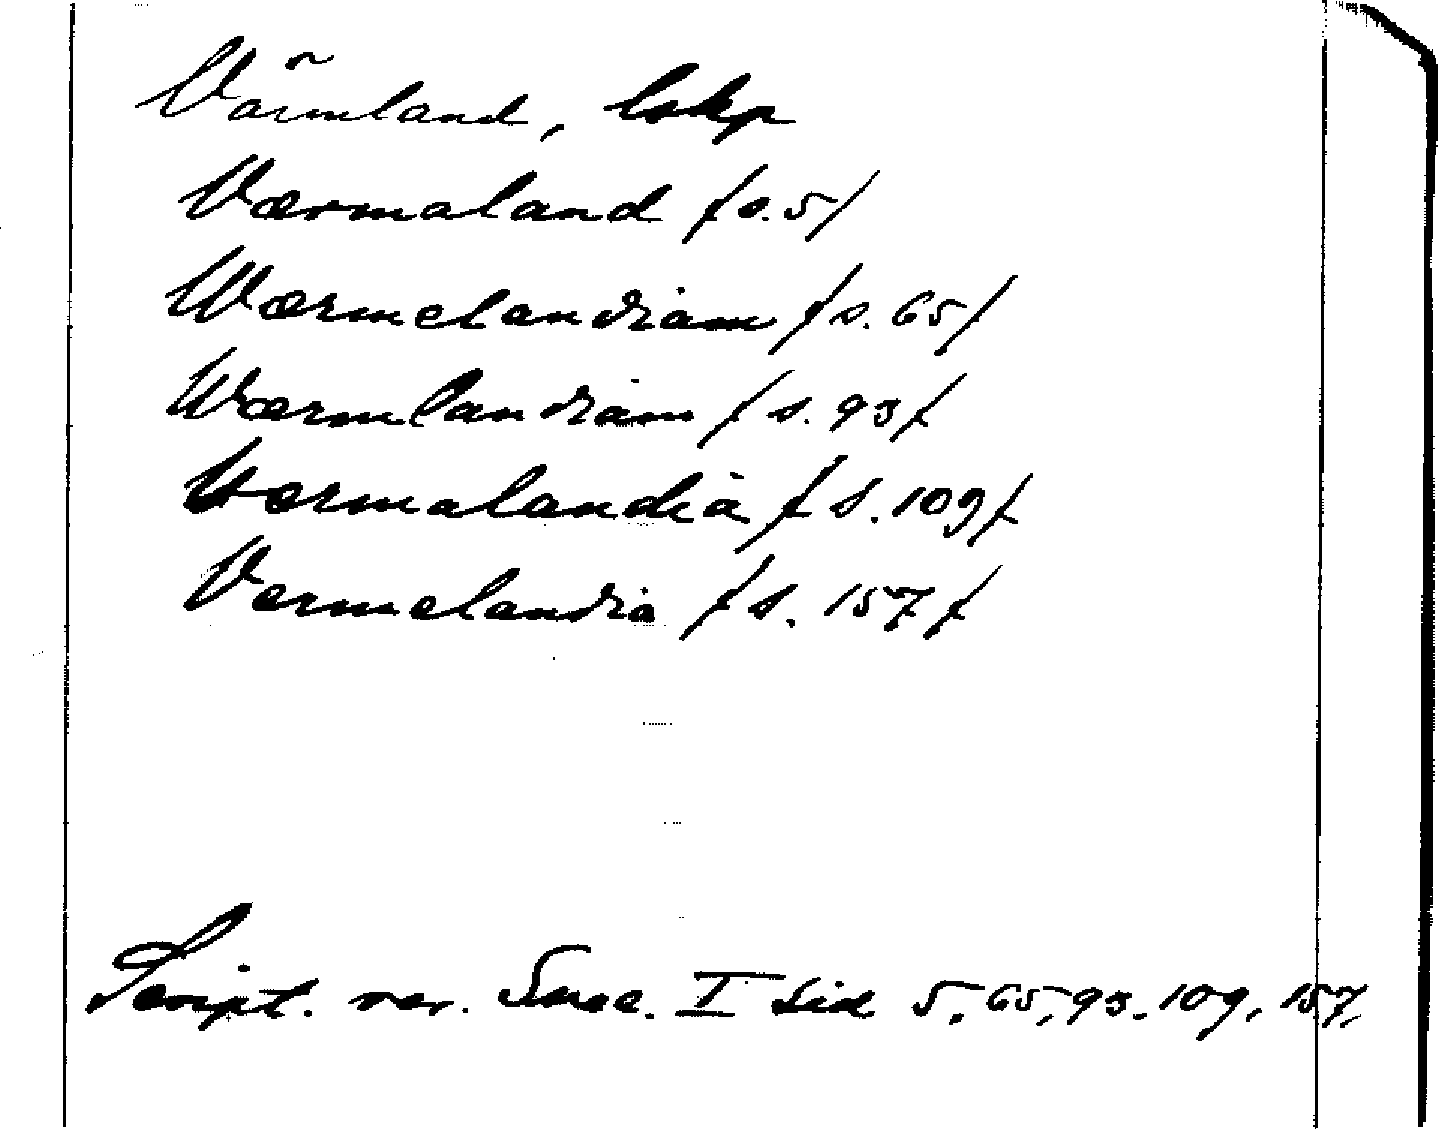 Värmland, lskp
Værmaland /s. 5/
Wærmelandiam /s. 65/
Wærmlandiam /s. 93/
Wærmalandia /s. 109/
Vermelandia /s. 157/
Script. rer. Suec. I sid 5, 65, 93. 109, 157,